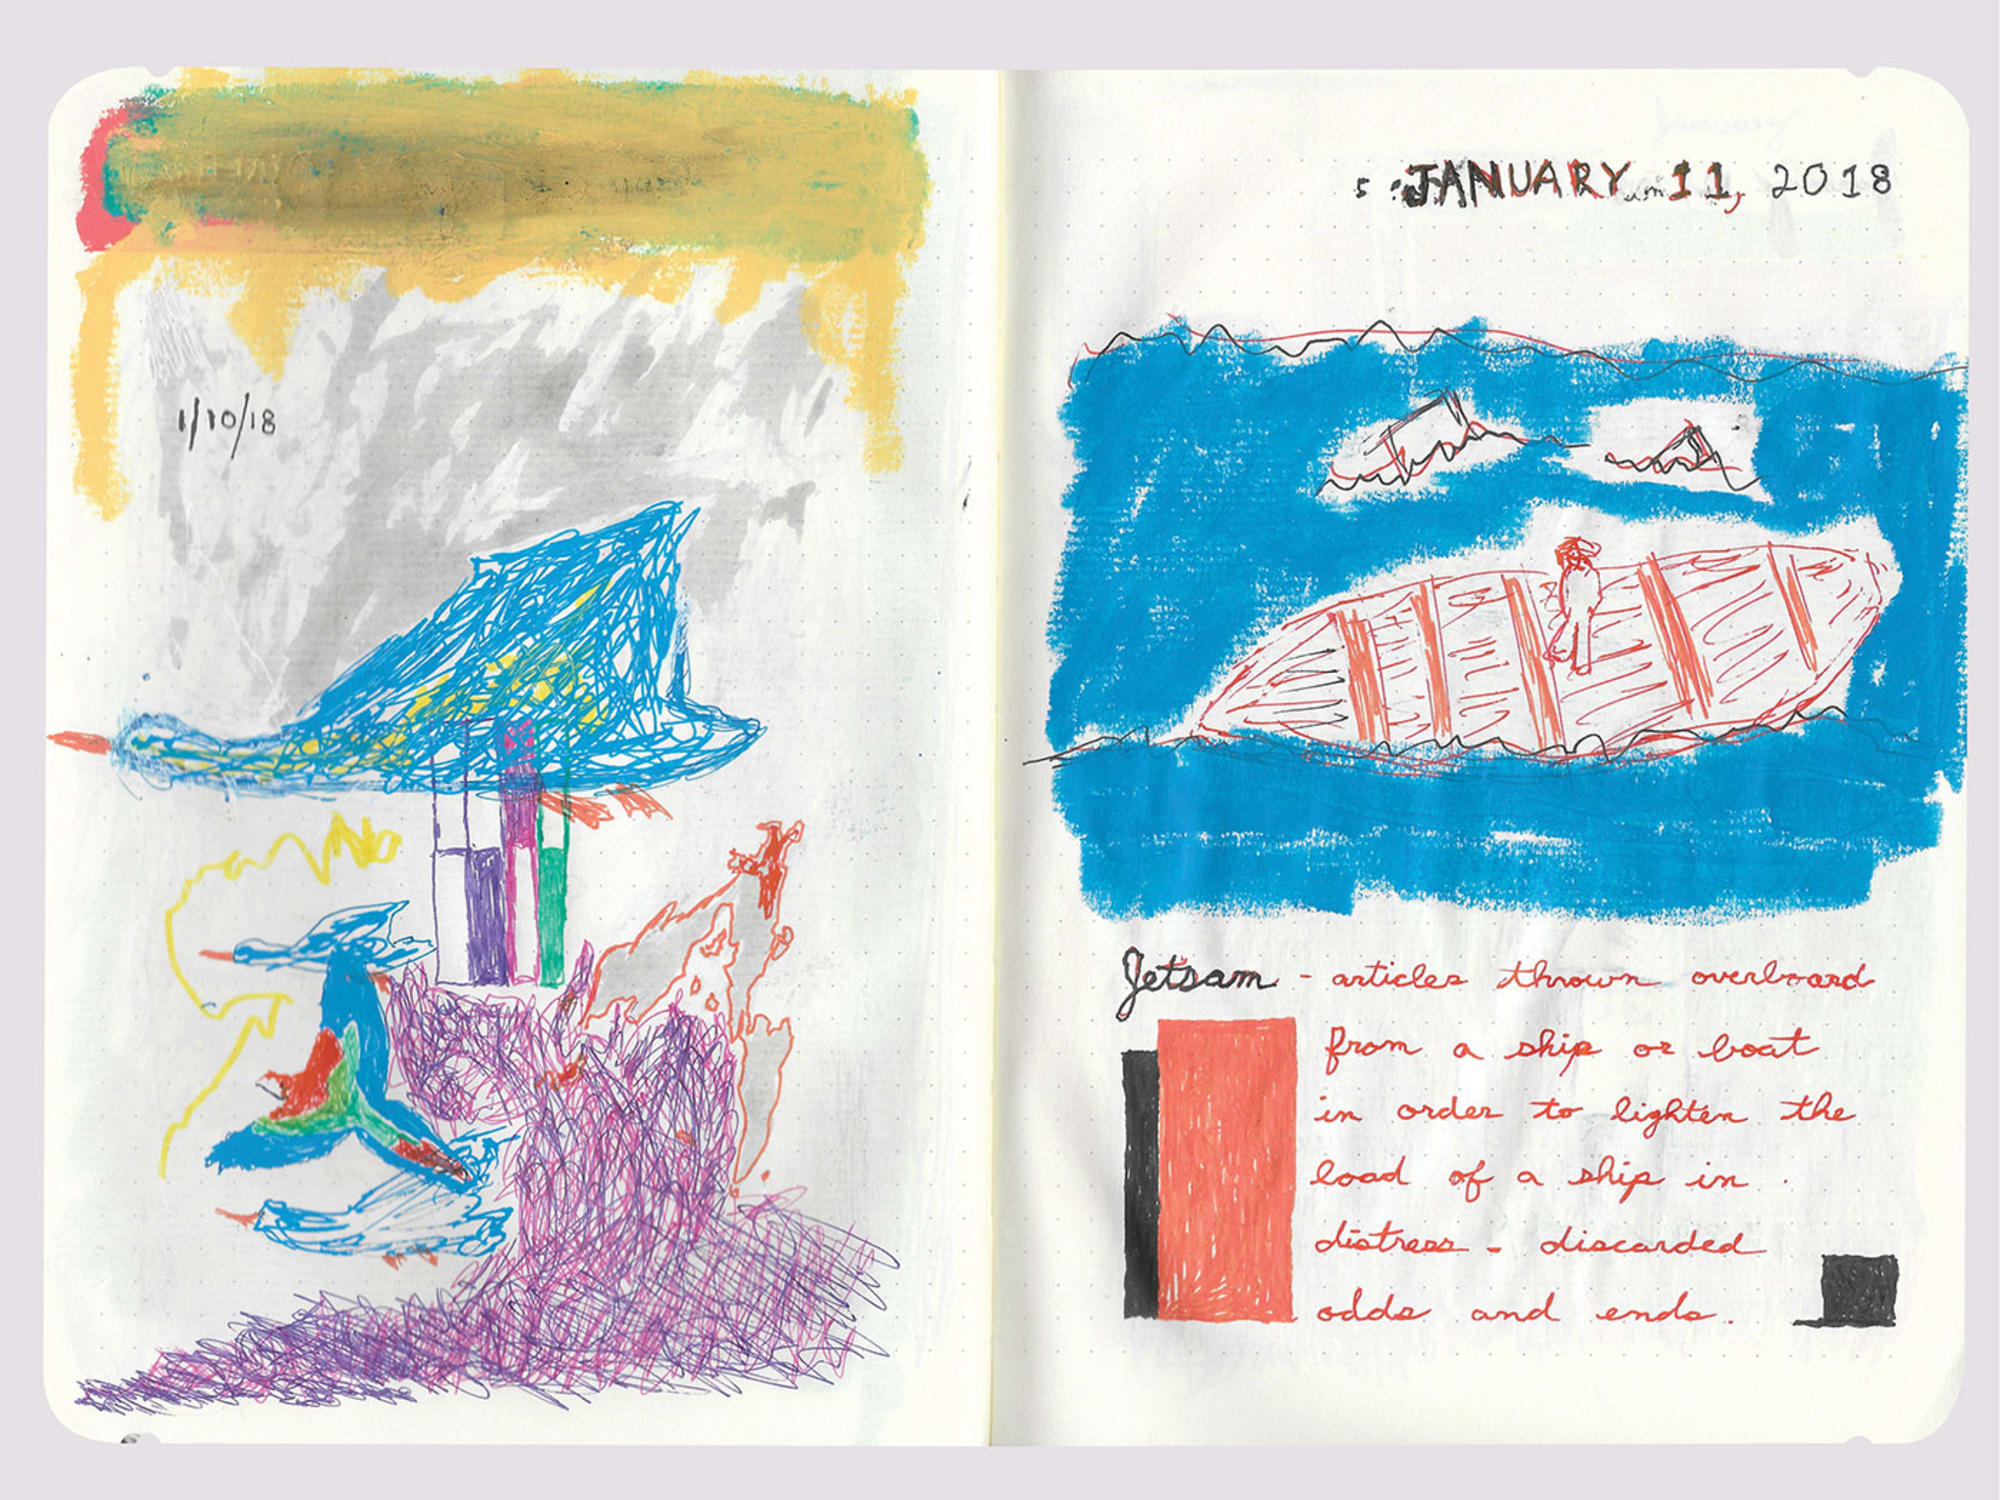 1/10/18
JANUARY 11, 2018
Jetsam - articles thrown overboard
from a ship or boat
in order to lighten the
load of a ship in
distress - discarded
odds and ends.